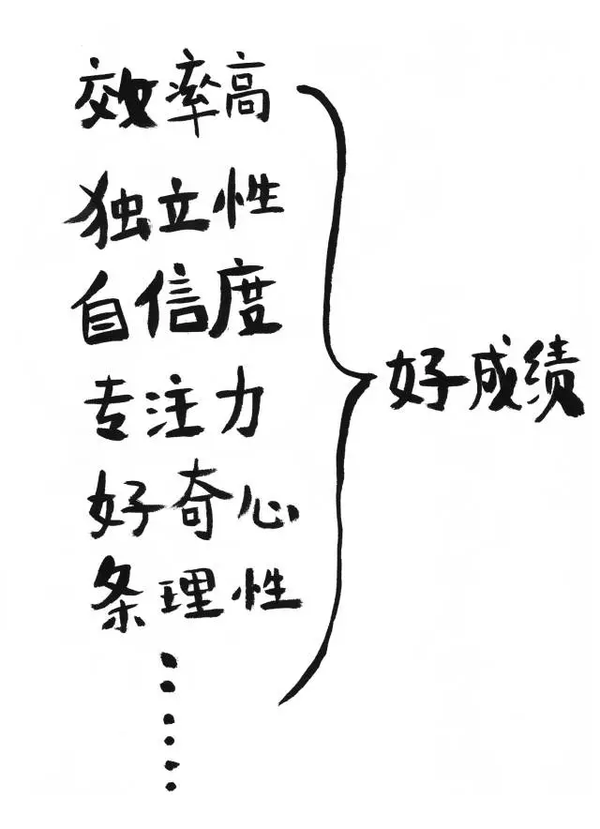 效率高
独立性
自信度
专注力
好奇心
条理性
……
好成绩